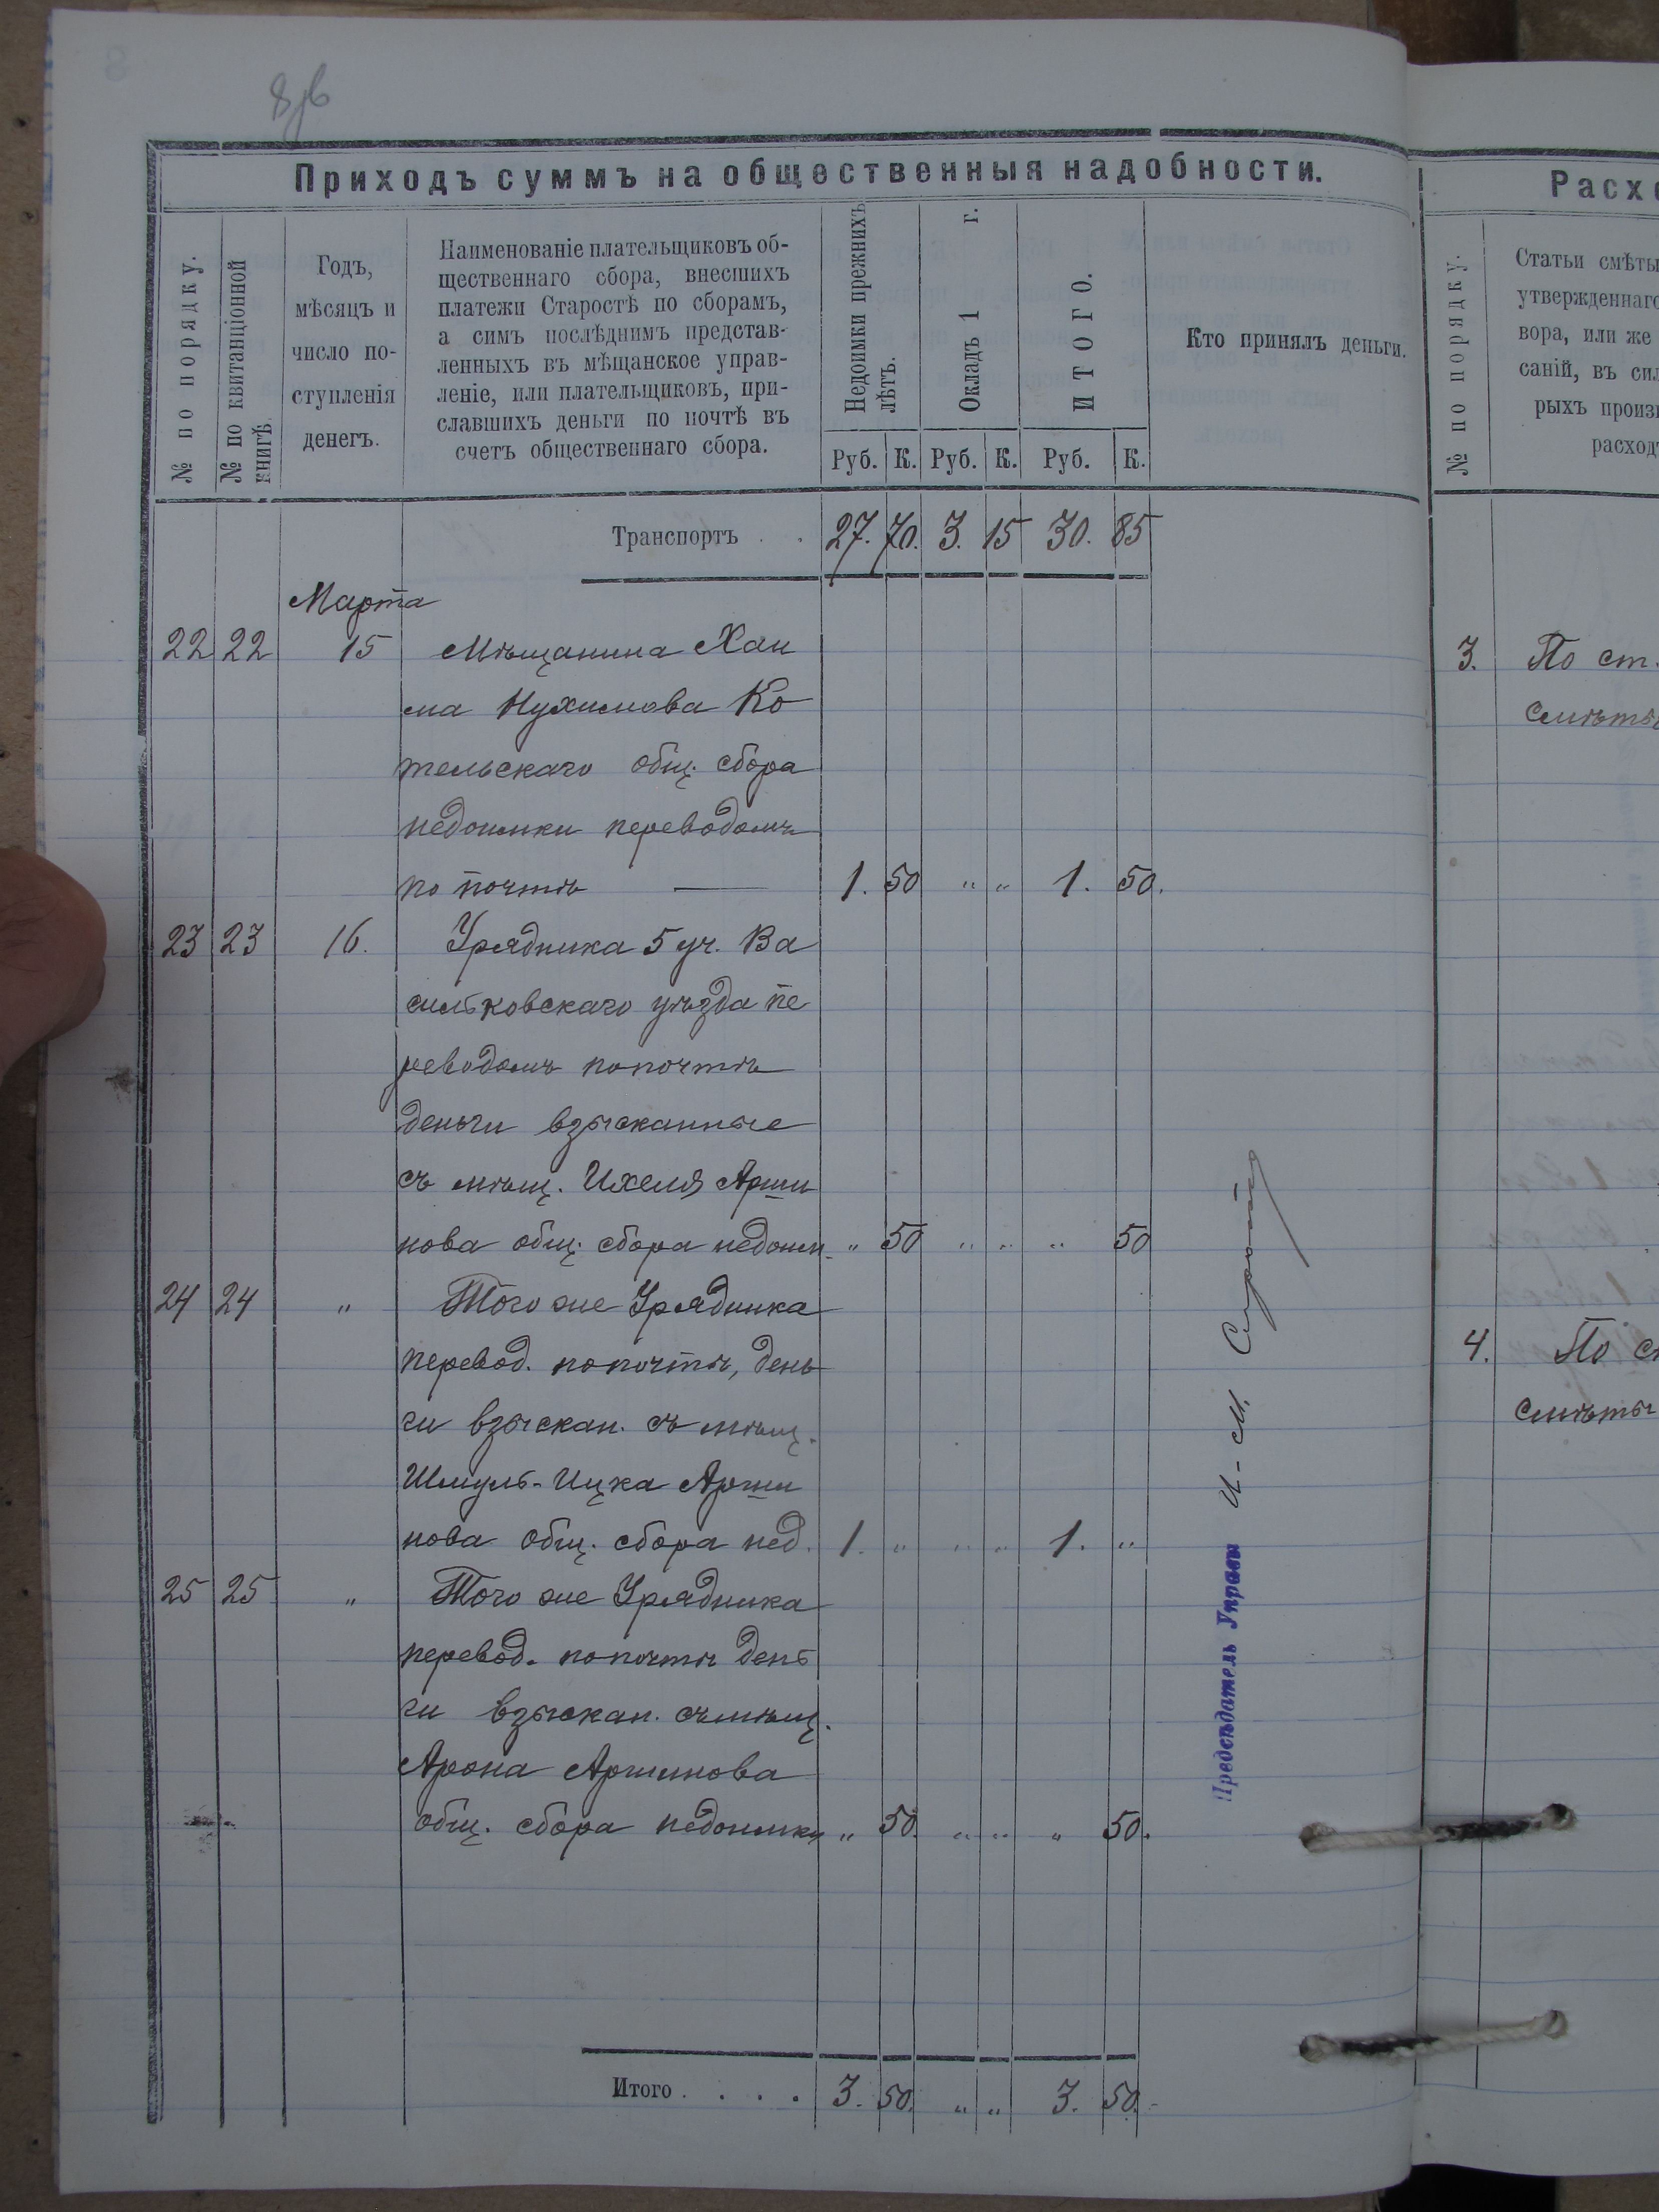 8 об
Приходъ суммъ на общественныя надобности.
№ по порядку.
№ по квитанціонной книгѣ.
Годъ,
мѣсяцъ и
число по-
ступленія
денегъ.
Наименованіе плательщиковъ об-
щественнаго сбора, внесшихъ
платежи Старостѣ по сборамъ,
а симъ послѣднимъ представ-
ленныхъ въ мѣщанское управ-
леніе, или плательщиковъ, при-
славшихъ деньги по почтѣ въ
счетъ общественнаго сбора.
Недоимки прежнихъ лѣтъ.
Окладъ 1 г.
ИТОГО.
Кто принялъ деньги.
Руб. К. Руб. К. Руб. К.
Транспортъ . . 27. 70. 3. 15 30. 85
Марта
22 22 15 Мѣщанина Хаи
ма Нухимова Ко
тельскаго общ. сбора
недоимки переводомъ
по почтѣ — 1. 50 " " 1. 50.
23 23 16. Урядника 5 уч. Ва
сильковскаго уѣзда пе
реводомъ по почтѣ
деньги взысканные
съ мѣщ. Ихеля Арши
нова общ. сбора недоим. " 50 " " " 50
24 24 " Того же Урядника
перевод. по почтѣ, день
ги взыскан. съ мѣщ.
Шмуль-Ицка Арши
нова общ. сбора нед. 1. " " " 1. "
25 25 " Того же Урядника
перевод. по почтѣ день
ги взыскан. съ мѣщ.
Арона Аршинова
общ. сбора недоимки " 50. " " " 50.
Итого . . . . 3. 50. " " 3. 50.
Предсѣдатель Управы И-М.
Расхо
№ по порядку.
Статьи смѣты
утвержденнаго
вора, или же
саній, въ сил
рыхъ произв
расход
3. По ст.
смѣты
4. По с
смѣты